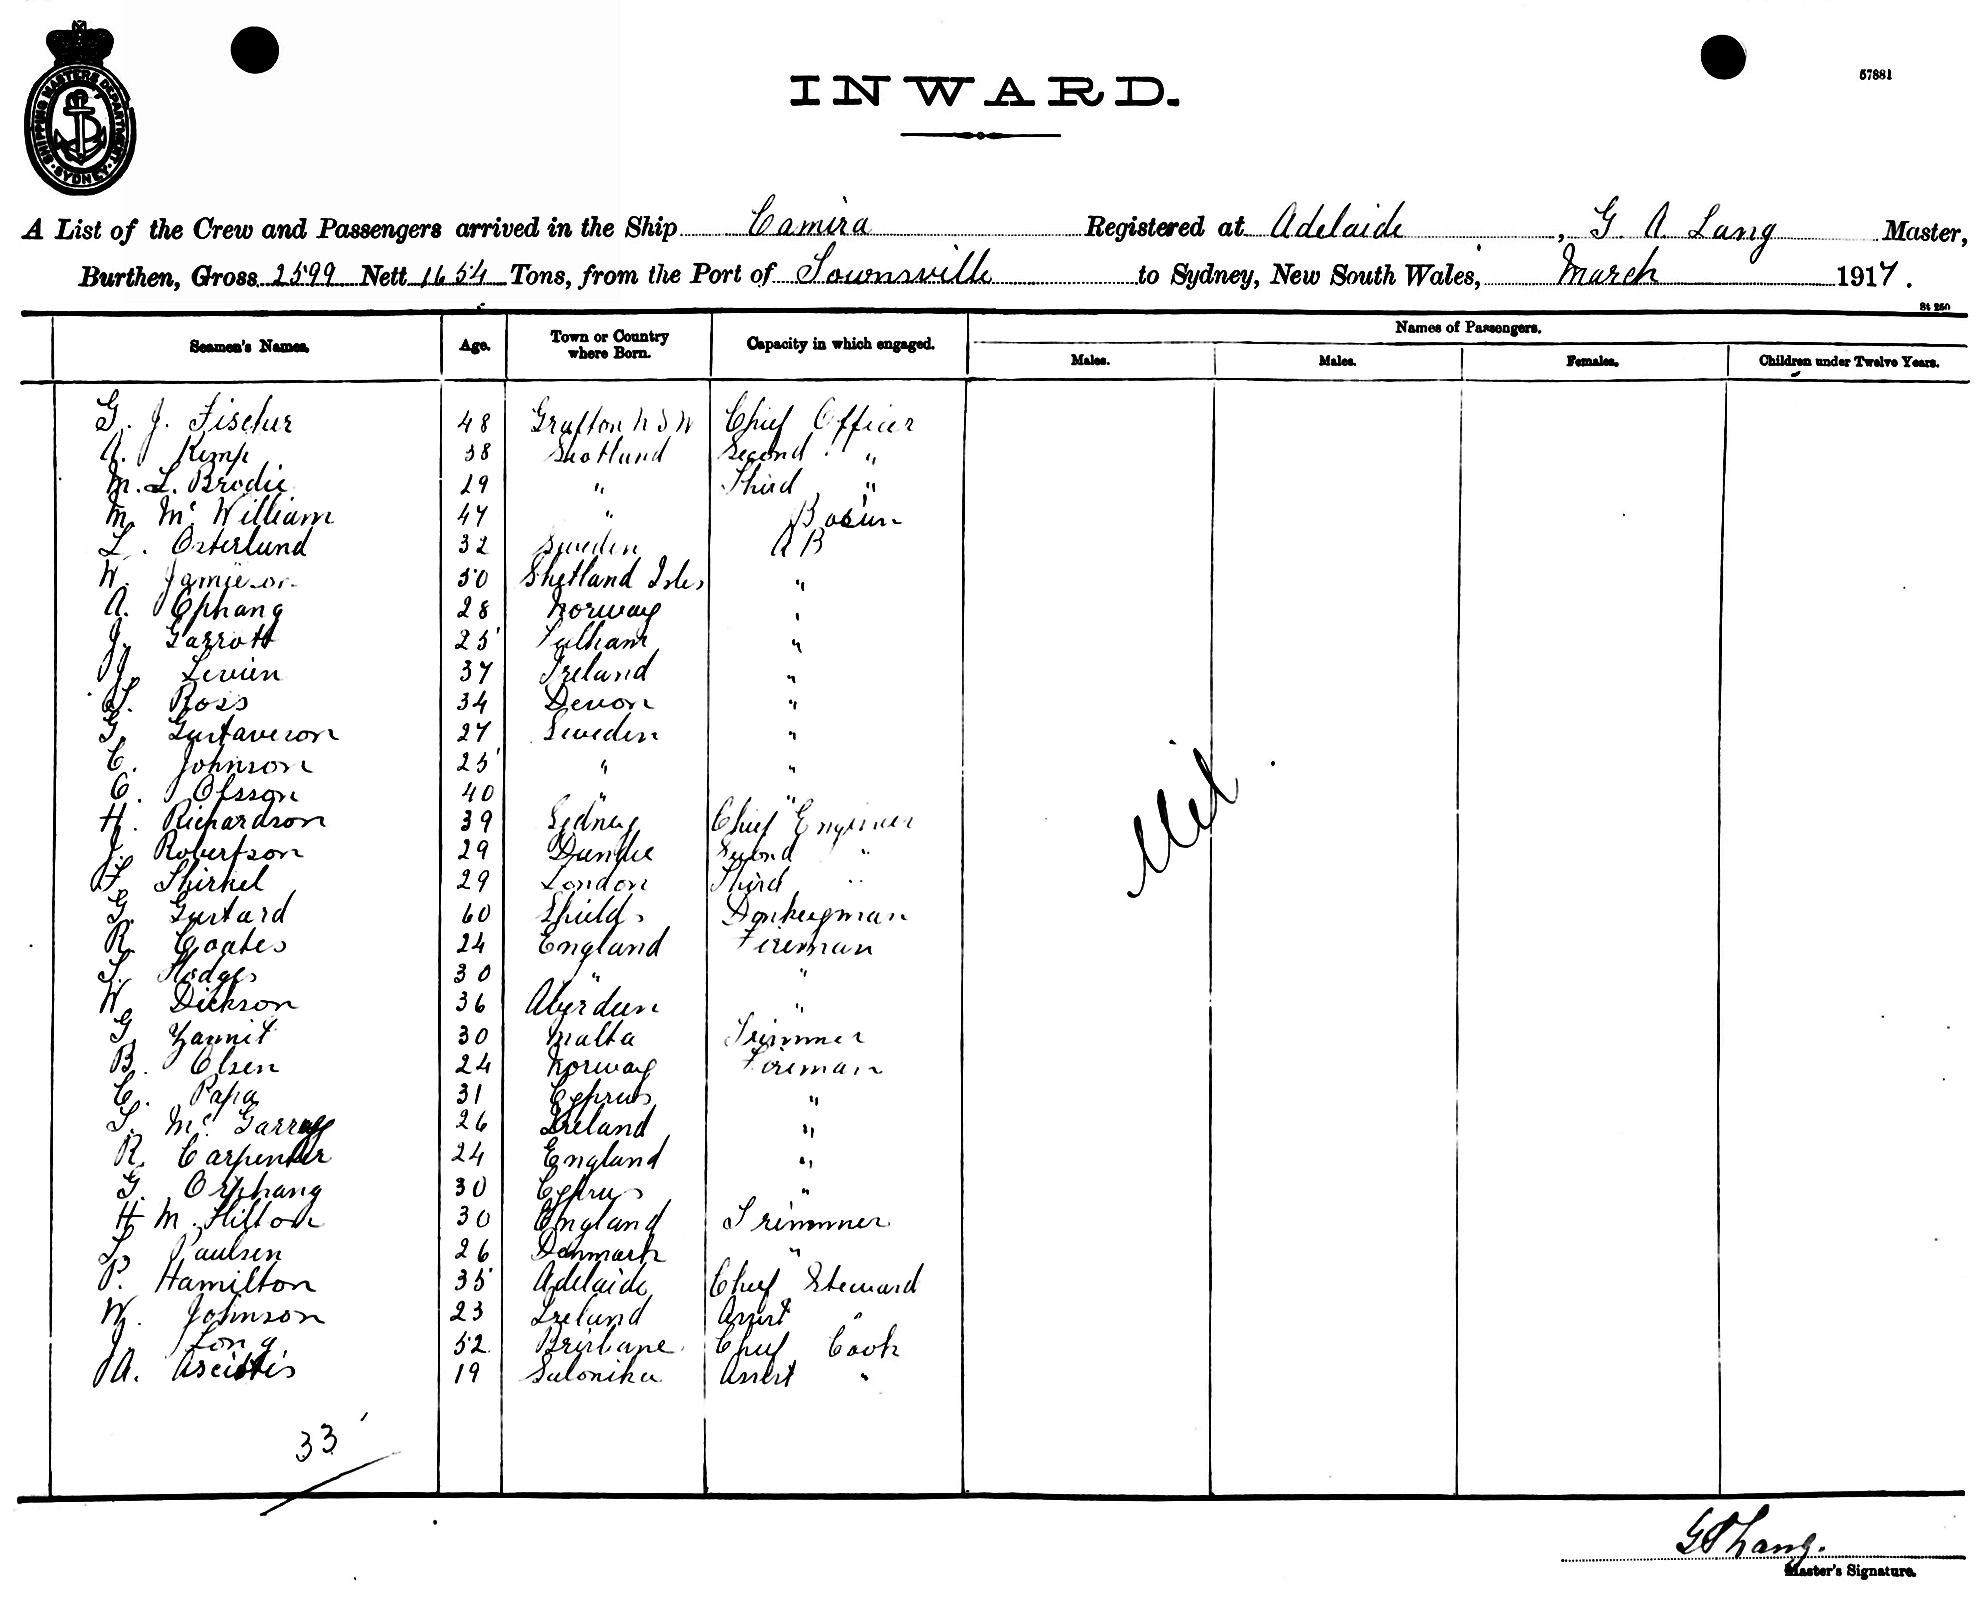 SHIPPING MASTERS DEPARTMENT · SYDNEY ·
57881
INWARD.
A List of the Crew and Passengers arrived in the Ship Camira Registered at Adelaide, G. A Lang Master,
Burthen, Gross 2599 Nett 1654 Tons, from the Port of Townsville to Sydney, New South Wales, March 1917.
St 250
Seamen's Names. Age. Town or Country where Born. Capacity in which engaged. Names of Passengers.
Males. Males. Females. Children under Twelve Years.
G. J. Fischer 48 Grafton N S W Chief Officer
A. Kemp 38 Scotland Second "
M. L. Brodie 29 " Third "
M. Mc William 47 " Bosun
L. Osterlund 32 Sweden A B
W. Jamieson 50 Shetland Isles "
A. Ophang 28 Norway "
J. Garrott 25 Fulham "
J. Levien 37 Ireland "
S. Ross 34 Devon "
G. Gustaveson 27 Sweden "
C. Johnson 25 " "
C. Olsson 40 " "
H. Richardson 39 Sydney Chief Engineer
J. Robertson 29 Dundee Second "
F. Shirkel 29 London Third "
G. Gustard 60 Shields Donkeyman
R. Coates 24 England Fireman
S. Hodges 30 " "
W. Dickson 36 Aberdeen "
G. Zammit 30 Malta Trimmer
B. Olsen 24 Norway Fireman
C. Papa 31 Cyprus "
T. Mc Garry 26 Ireland "
R. Carpenter 24 England "
G. Orphang 30 Cyprus "
H. M. Hilton 30 England Trimmer
L. Paulsen 26 Denmark "
P. Hamilton 35 Adelaide Chief Steward
W. Johnson 23 Ireland Assist "
J. Long 52 Brisbane Chief Cook
A. 19 Salonika Assist "
Nil
33
G A Lang.
Master's Signature.